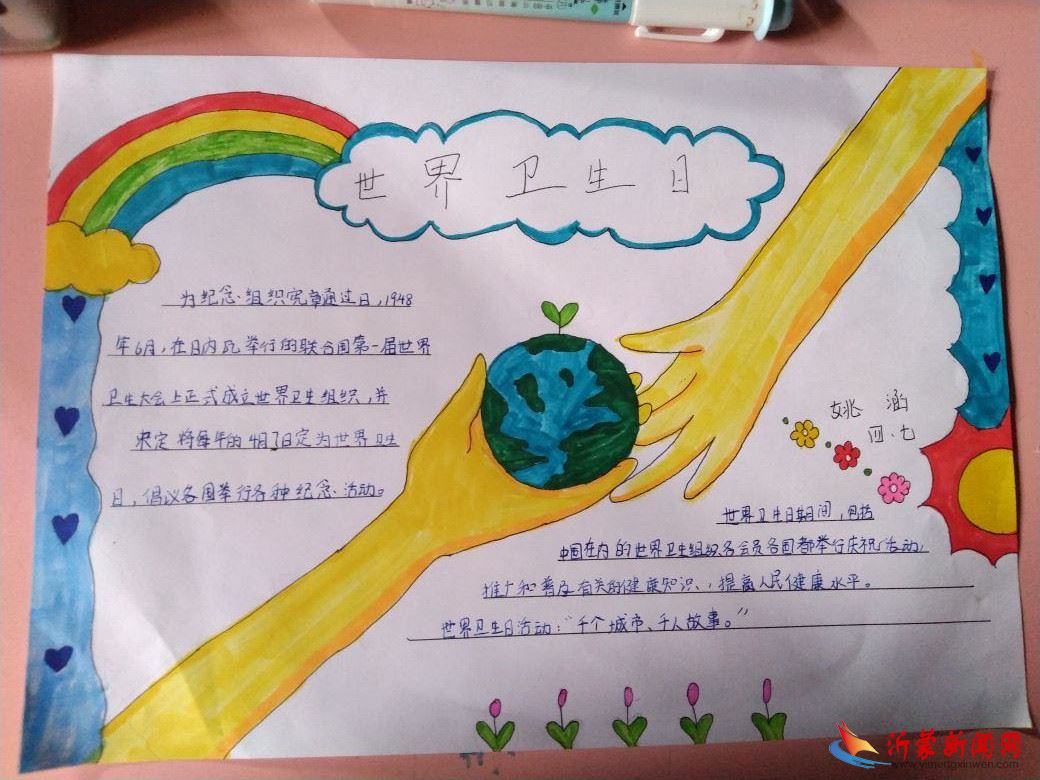 世界卫生日
为纪念组织宪章通过日,1948
年6月,在日内瓦举行的联合国第一届世界
卫生大会上正式成立世界卫生组织,并
决定将每年的4月7日定为世界卫生
日,倡议各国举行各种纪念活动。
姚涵
四.七
世界卫生日期间,包括
中国在内的世界卫生组织各会员各国都举行庆祝活动,
推广和普及有关的健康知识,提高人民健康水平。
世界卫生日活动:“千个城市、千人故事。”
沂蒙新闻网
www.yimengxinwen.com